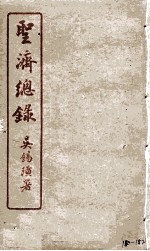 聖濟總錄
吳錫璜署
180-182